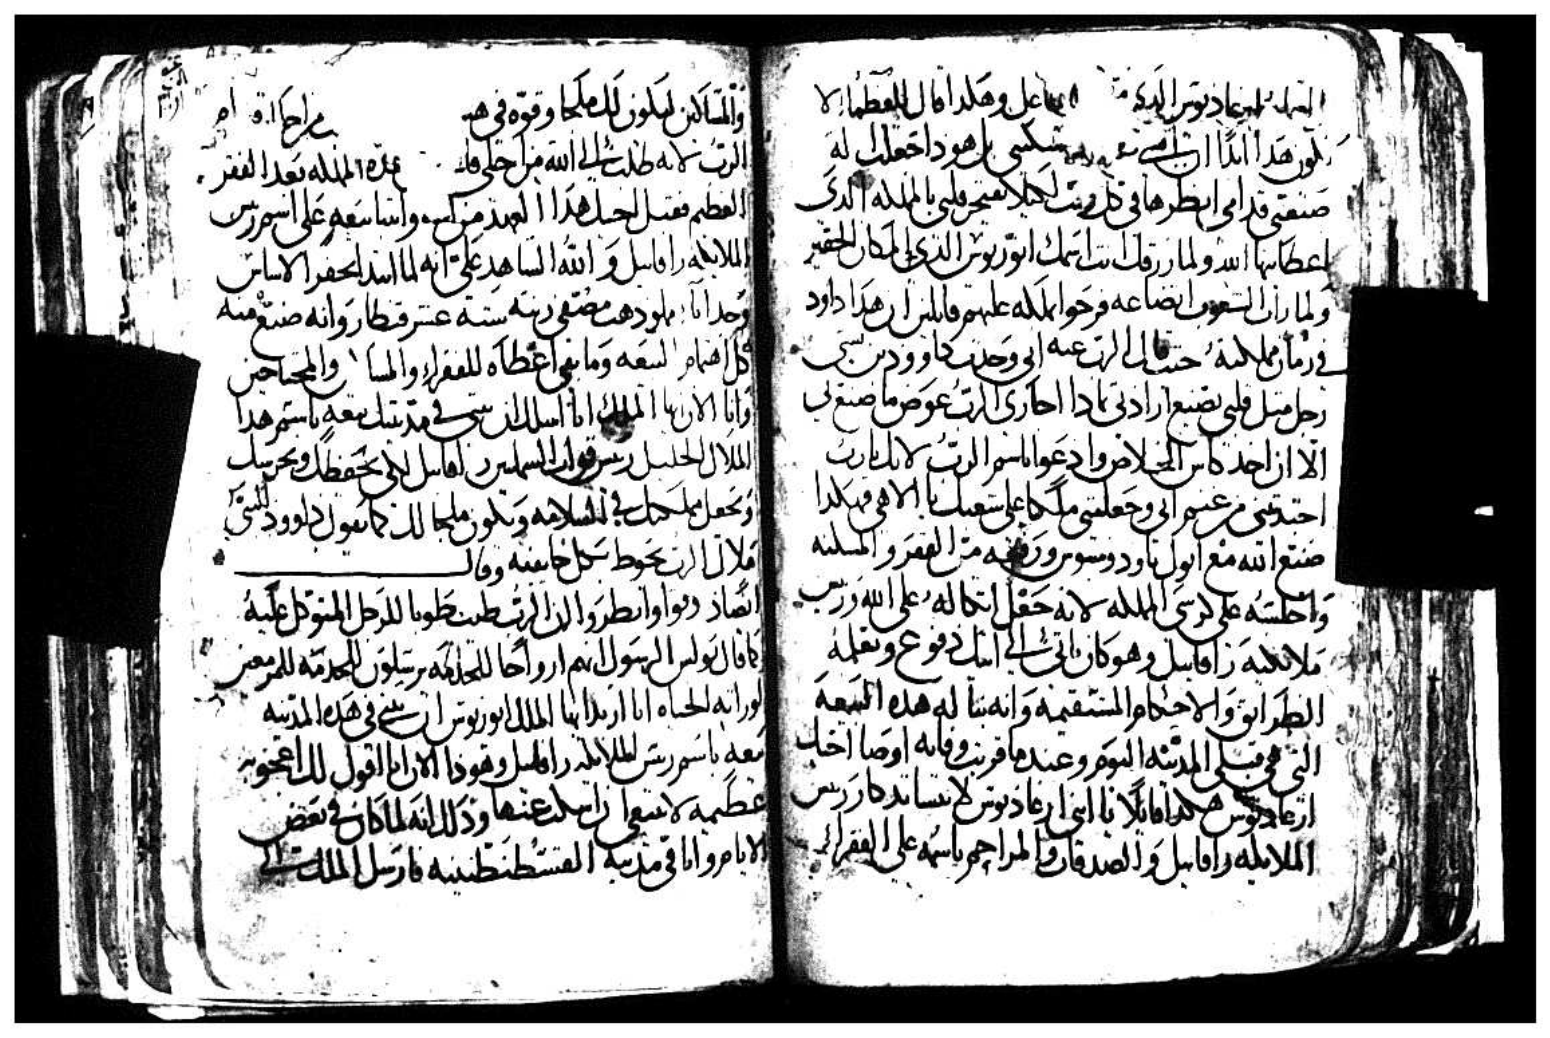 ارغاديوس الذى فاعل وهكدا قال للعظما لا
يكون هدا ابدا ان امضى بل هودا اجعلها له
صنعتى قدامى انظرها فى كل وقت لكيلا يفتخر قلبى بالمملكه الذى
اعطانيها الله ولما رزقك انت اسمك انوريوس الذى المكان الحقير
ولما راى الشعوب اتضاعه فرحوا بملكه عليهم قايلين ان هدا داود
فى زمان مملكته حيث الرب عنه انى وجدت داوود بن يسى
رجل مثل قلبى يصنع ارادتى بمادا اجازى الرب عوض ما صنع بى
الا ان اخد كاس الخلاص وادعوا باسم الرب لانك يارب
اخدتنى من غنم ابى وجعلتنى ملكا على شعبك يا الاهى فهكدا
صنع الله مع ابوك تاودوسيوس ورفعه من الفقر والمسكنه
واجلسه على كرسى المملكه لانه جعل اتكاله على الله وريس
ملايكته رافاييل وهو كان ياتى الى ابيك دفوع ويعلمه
الطرايق والاحكام المستقيمه وانه بنا له هده البيعه
التى هى قبلى المدينه اليوم وعندما قربت وفاته اوصا اخاك
ارغاديوس هكدا قايلا يا ابنى ارغاديوس لا تنسا تدكار ريس
الملايكه رافاييل والصدقات والمراحم باسمه على الفقرا
والمساكين ليكون لك ملجا وقوه فى هده
الرب لانه طلب الى الله من اجلى هده المملكه بعد الفقر
العظيم فقبل اخيك هدا العهد من ابيه وابتنا بيعه على اسم ريس
الملايكه رافاييل والله الشاهد على انه لما ابتدا بحفر الاساس
وجد انا مملو دهب مصفى زنته سته عشر قنطار وانه صنع منه
كل اهتمام البيعه وما بقى اعطاه للفقرا والمساكين والمحتاجين
وانا الان ايها الملك انا اسلك ان تبنى فى مدينتك بيعه باسم هدا
الملاك الجليل ريس قوات السمايين رافاييل لكى يحفظك ويحرسك
ويجعل مملكتك فى السلامه ويكون ملجا لك كما يقول داوود النبى
ملاك الرب يحوط بكل خايفيه وقال
ايضا دوقوا وانظروا ان الرب طيب طوبا للرجل المتوكل عليه
كما قال بولس الرسول انهم ارواحا للخدمه يرسلون للخدمه للمزمعين
لوراثه الحياه انا اريد ايها الملك انوريوس ان تبنى فى هده المدينه
بيعه باسم ريس الملايكه رافاييل وهودا الان انا اقول لك اعجوبه
عظيمه لا ينبغى ان اسكت عنها ودلك انه لما كان فى بعض
الايام وانا فى مدينه القسطنطينيه فارسل الملك الى